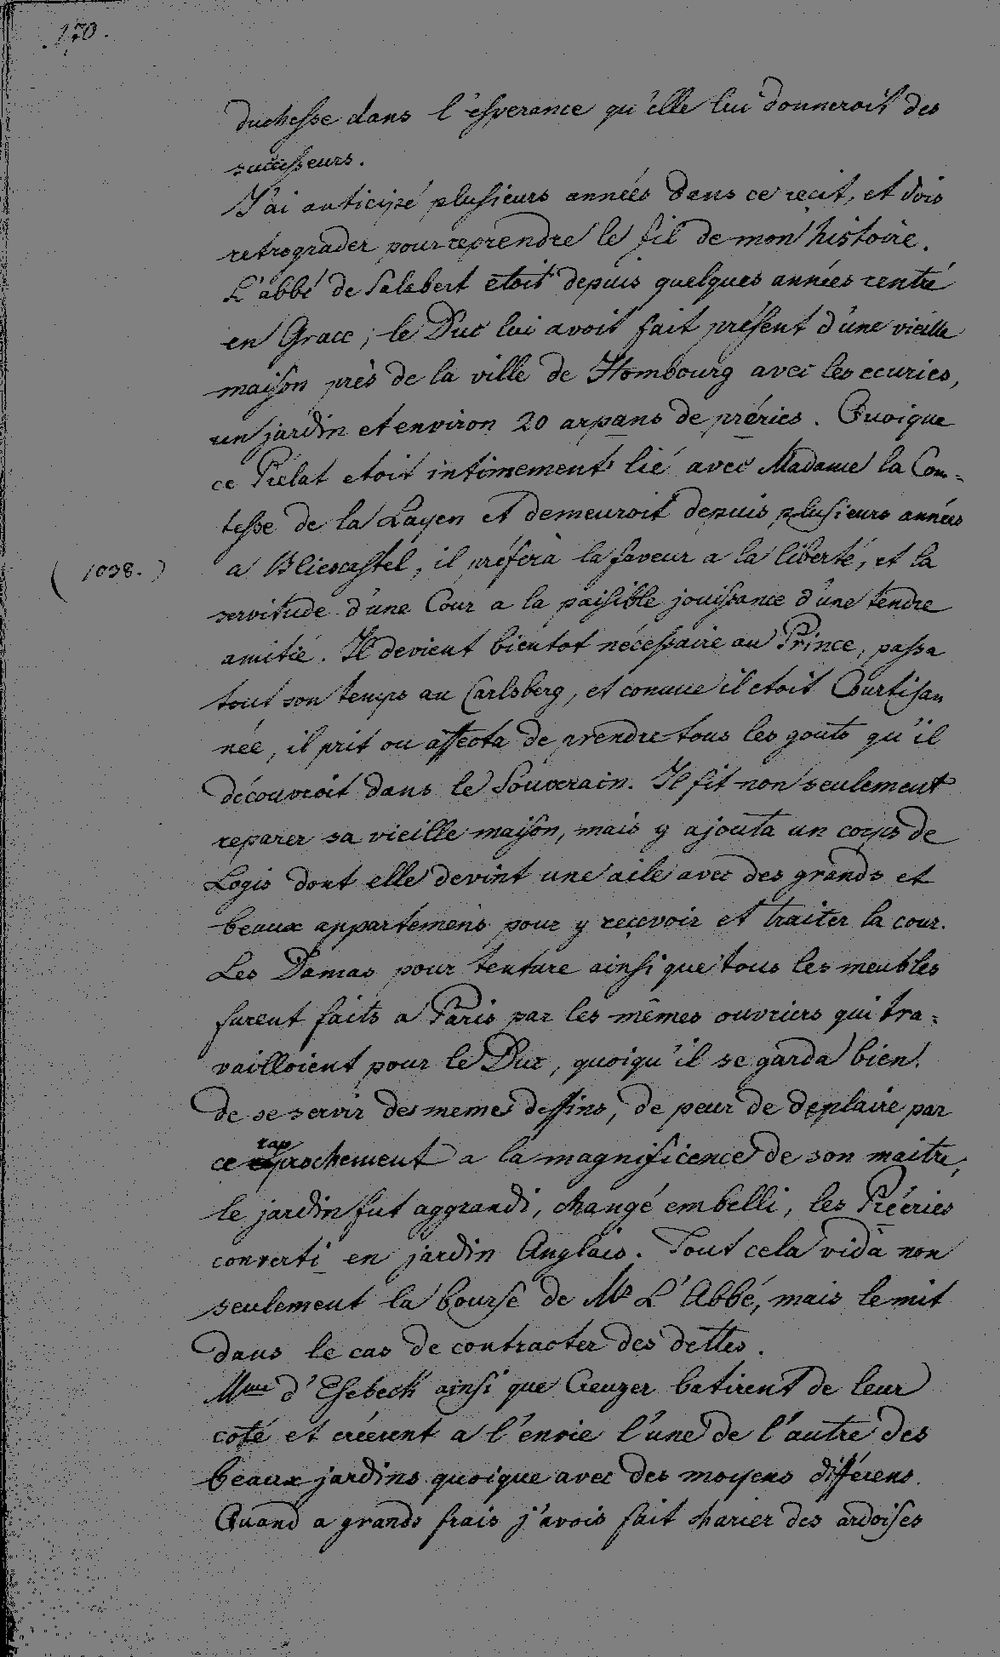 170.
duchesse dans l'esperance qu'elle lui donneroit des
successeurs.
J'ai anticipé plusieurs années dans ce recit, et dois
retrograder pour reprendre le fil de mon histoire.
L'abbé de Salabert etoit depuis quelques années rentré
en Grace; le Duc lui avoit fait présent d'une vieille
maison près de la ville de Hombourg avec les ecuries,
un jardin et environ 20 arpans de préries. Quoique
ce Prélat etoit intimement lié avec Madame la Com-
tesse de la Layen et demeuroit depuis plusieurs années
(1038.) a Bliescastel, il préfera la faveur a la liberté, et la
servitude d'une Cour a la paisible jouissance d'une tendre
amitié. Il devient bientot nécessaire au Prince, passa
tout son temps au Carlsberg, et comme il etoit Courtisan
née, il prit ou affecta de prendre tous les gouts qu'il
découvroit dans le Souverain. Il fit non seulement
reparer sa vieille maison, mais y ajouta un corps de
Logis dont elle devint une aile avec des grands et
beaux appartemens pour y reçevoir et traiter la cour.
Les Damas pour tenture ainsi que tous les meubles
furent faits a Paris par les mêmes ouvriers qui tra-
vailloient pour le Duc, quoiqu'il se garda bien
de se servir des memes dessins, de peur de deplaire par
ce rapprochement a la magnificence de son maitre;
le jardin fut aggrandi, changé embelli, les Préeries
converti en jardin Anglais. Tout cela vida non
seulement la bourse de Mr L'Abbé, mais le mit
dans le cas de contracter des dettes.
Mme d'Esebeck ainsi que Creuzer batirent de leur
coté et créerent a l'envie l'une de l'autre des
beaux jardins quoique avec des moyens différens.
Quand a grands frais j'avois fait charier des ardoises